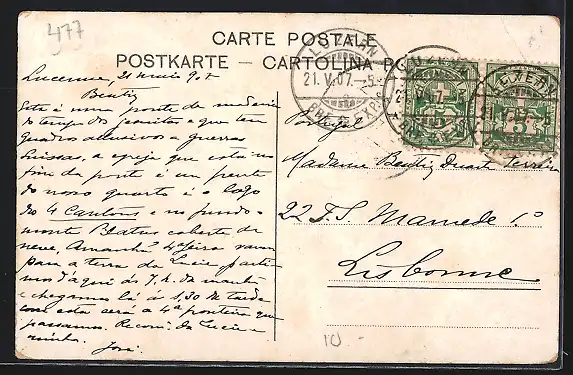 477
CARTE POSTALE
POSTKARTE — CARTOLINA PO
LUZERN
21.V.07.-5
BRF. EXP.
LUZERN
LUZERN
Lucerna, 21 maio 907
Beatriz
Esta é uma ponte de madeira
do tempo dos jesuitas e que tem
quadros allusivos a guerras
Suissas, a egreja que está no
fim da ponte é em frente
do nosso quarto é o lago
dos 4 Cantões e no fundo o
monte Pilatus coberto de
neve, Amanhã 4ª feira vamos
para a terra da Lucie parti-
mos d'aqui ás 7 h. da manhã
e chegamos lá á 1,30 da tarde
com esta será a 4ª fronteira que
passamos. Recom. da Lucie e
minha.
José.
Portugal
Madame Beatriz Duarte Ferreira
22 T. S. Mamede 1.º
Lisbonne
10